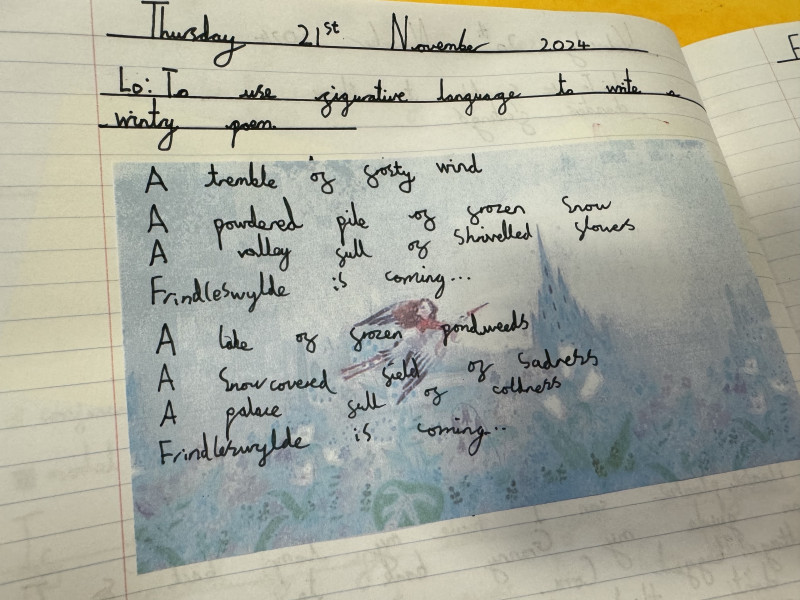 Thursday 21st November 2024
Lo: To use figurative language to write a
wintry poem.
A tremble of frosty wind
A powdered pile of frozen snow
A valley full of shrivelled flowers
Frindleswylde is coming...
A lake of frozen pondweeds
A snowcovered field of sadness
A palace full of coldness
Frindleswylde is coming...